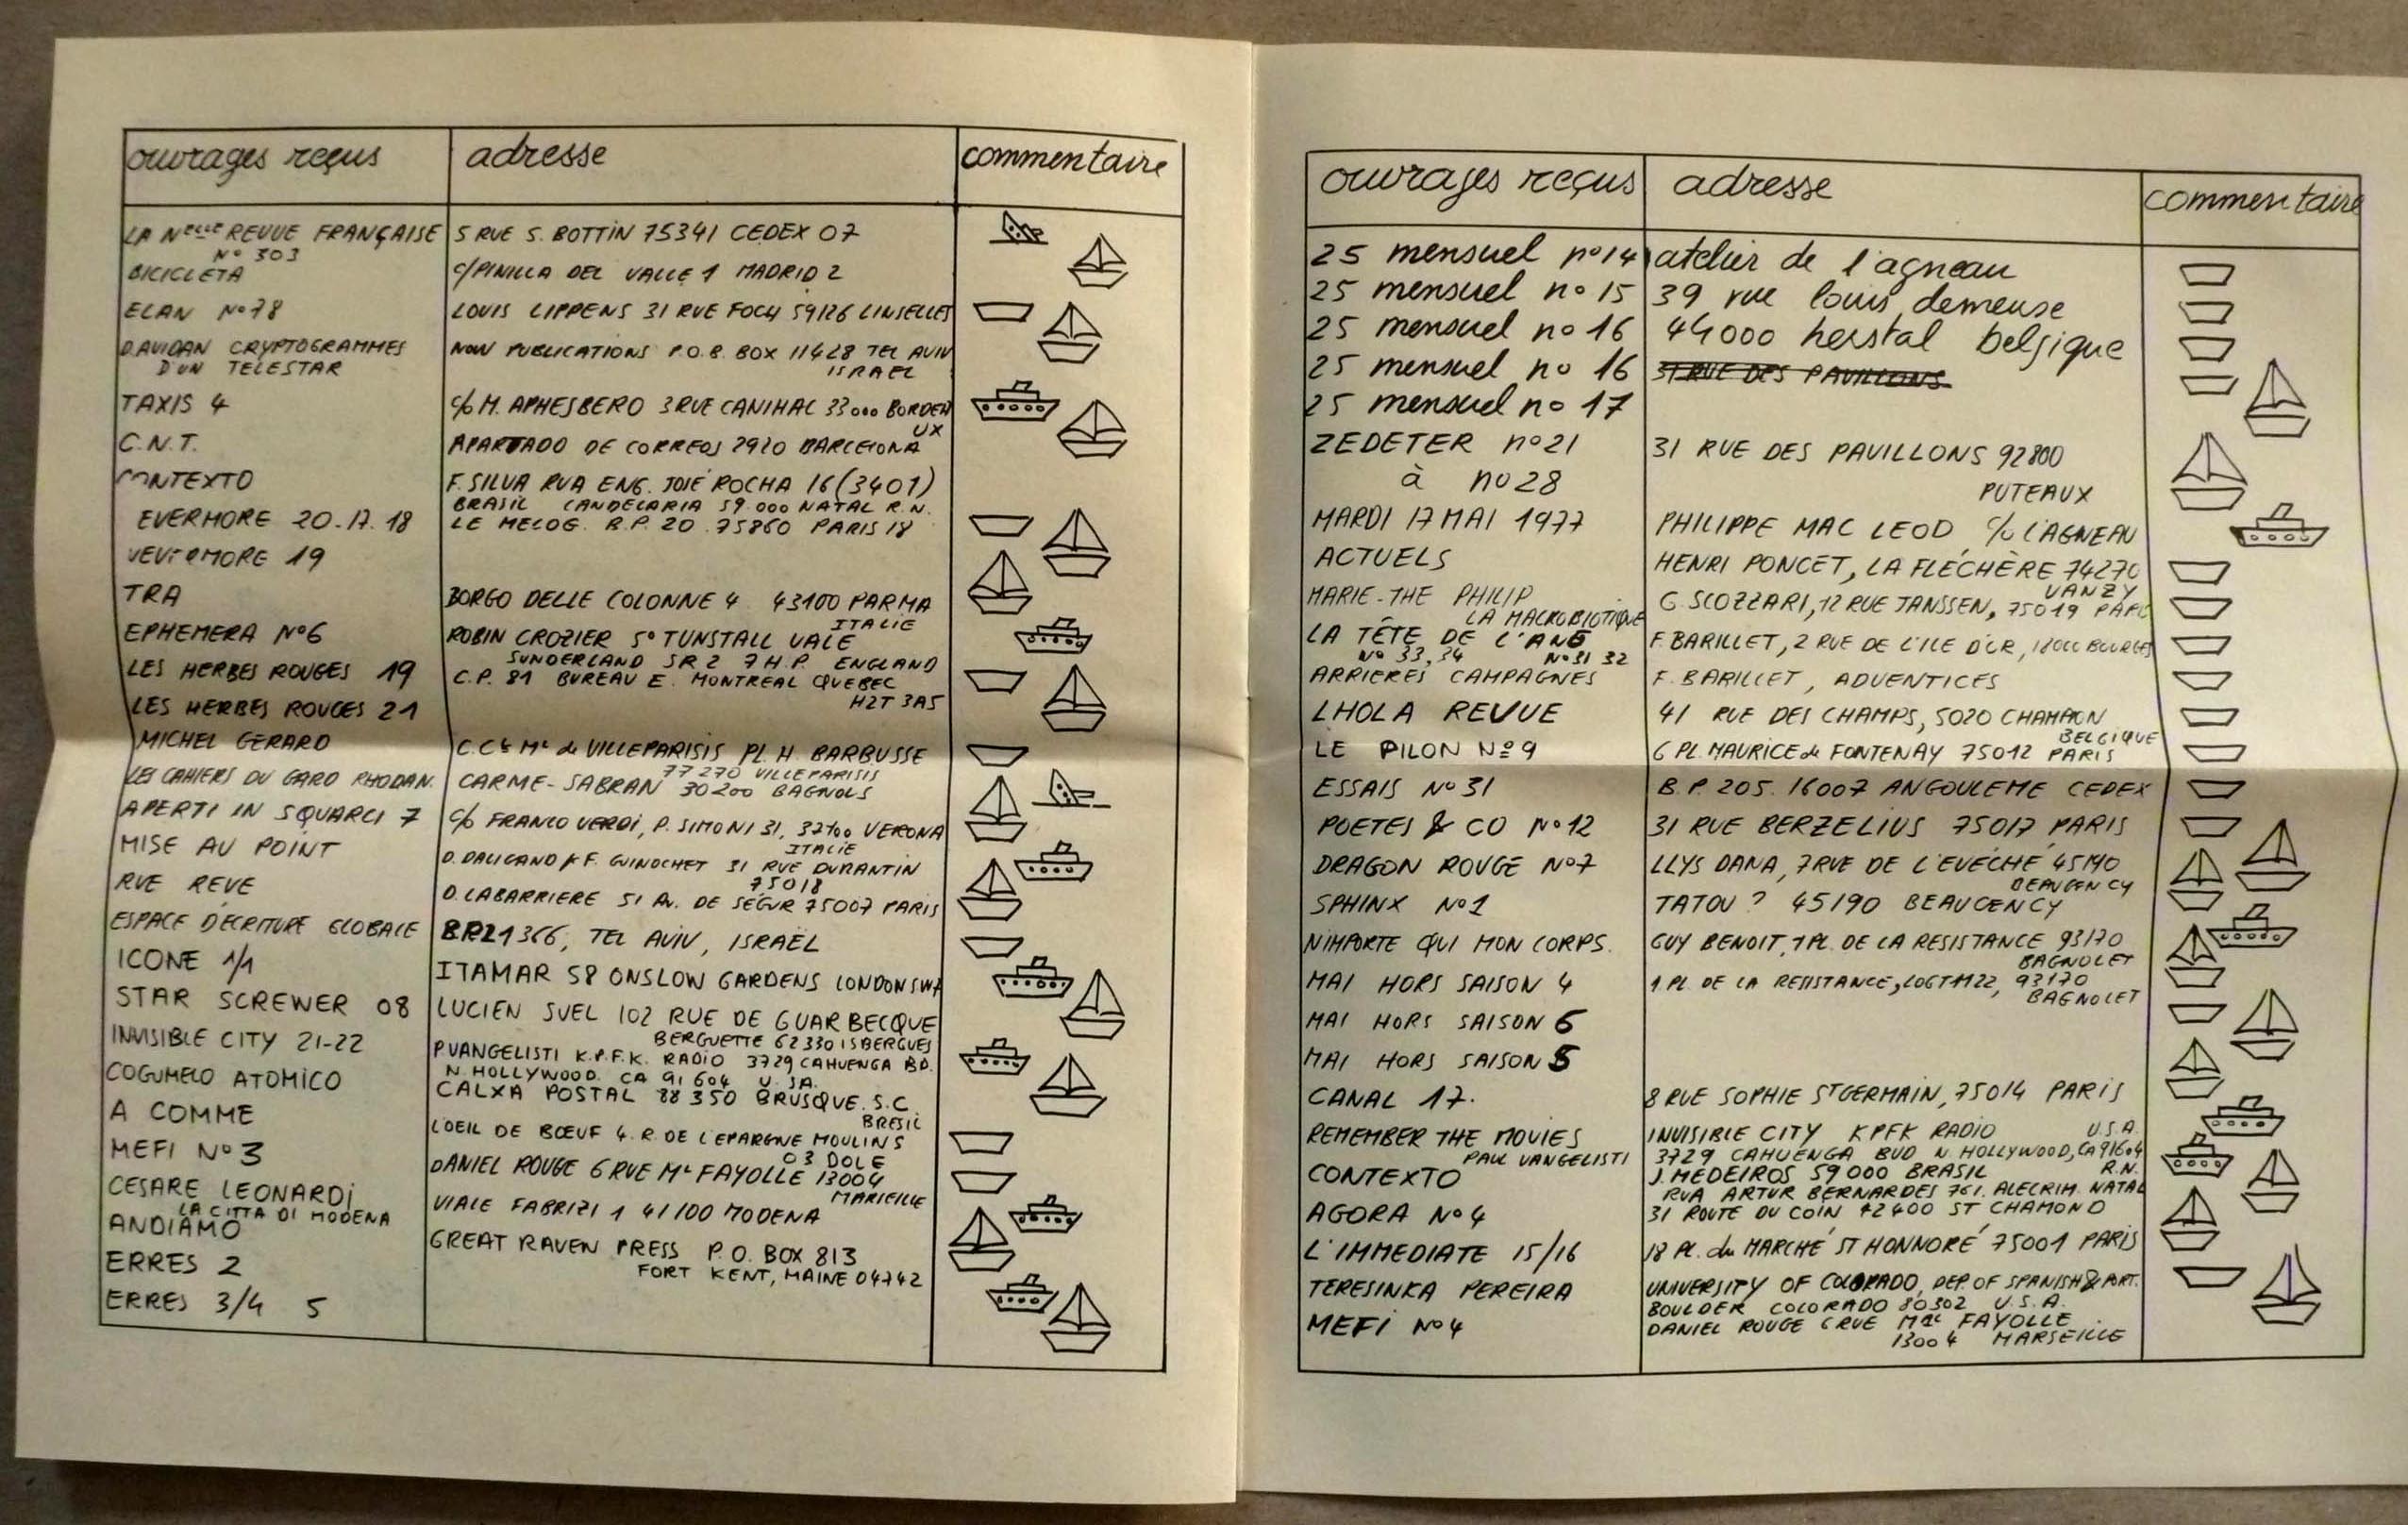 ouvrages reçus adresse commentaire
LA Nelle REVUE FRANÇAISE 5 RUE S. BOTTIN 75341 CEDEX 07
N° 303
BICICLETA C/PINILLA DEL VALLE 1 MADRID 2
ELAN N°78 LOUIS LIPPENS 31 RUE FOCH 59126 LINSELLES
DAVIDAN CRYPTOGRAMMES NOW PUBLICATIONS P.O.B. BOX 11428 TEL AVIV
D'UN TELESTAR ISRAEL
TAXIS 4 C/o M. APHESBERO 3 RUE CANIHAC 33000 BORDEA
UX
C.N.T. APARTADO DE CORREOS 2920 BARCELONA
CONTEXTO F. SILVA RUA ENG. JOSÉ ROCHA 16 (3401)
BRASIL CANDELARIA 59.000 NATAL R.N.
EVERMORE 20.17.18 LE MELOG. B.P. 20 .75860 PARIS 18
19
TRA BORGO DELLE COLONNE 4 43100 PARMA
ITALIE
EPHEMERA N°6 ROBIN CROZIER 5° TUNSTALL VALE
SUNDERLAND SR2 7H.P. ENGLAND
LES HERBES ROUGES 19 C.P. 81 BUREAU E. MONTREAL QUEBEC
H2T 3A5
LES HERBES ROUGES 21
MICHEL GERARD C. Cel Mel de VILLEPARISIS PL. H. BARBUSSE
77270 VILLEPARISIS
LES CAHIERS DU GARD RHODAN. CARME-SABRAN 30200 BAGNOLS
APERTI IN SQUARCI 7 C/o FRANCO VERDI, P. SIMONI 31, 37100 VERONA
ITALIE
MISE AU POINT D. DALIGAND & F. GUINOCHET 31 RUE DURANTIN
75018
RUE REVE D. LABARRIERE 51 AV. DE SÉGUR 75007 PARIS
ESPACE D'ÉCRITURE GLOBALE 1366, TEL AVIV, ISRAËL
ICONE 1/1 ITAMAR 58 ONSLOW GARDENS LONDON SW7
STAR SCREWER 08 LUCIEN SUEL 102 RUE DE GUARBECQUE
BERGUETTE 62330 ISBERGUES
INVISIBLE CITY 21-22 P VANGELISTI K.P.F.K. RADIO 3729 CAHUENGA BD.
N. HOLLYWOOD. CA 91604 U.SA.
COGUMELO ATOMICO CALXA POSTAL 88350 BRUSQUE. S.C.
BRESIL
A COMME L'OEIL DE BŒUF 4. R. DE L'EPARGNE MOULINS
03 DOLE
MEFI N°3 DANIEL ROUGE 6 RUE Ml FAYOLLE 13004
MARSEILLE
CESARE LEONARDI VIALE FABRIZI 1 41100 MODENA
LA CITTA DI MODENA
ANDIAMO GREAT RAVEN PRESS P.O. BOX 813
FORT KENT, MAINE 04742
ERRES 2
ERRES 3/4 5
ouvrages reçus adresse commentaire
25 mensuel n°14 atelier de l'agneau
25 mensuel n° 15 39 rue louis demeuse
25 mensuel no 16 44000 herstal belgique
25 mensuel no 16 31 RUE DES PAVILLONS
25 mensuel no 17
ZEDETER n°21 31 RUE DES PAVILLONS 92800
à no 28 PUTEAUX
MARDI 17 MAI 1977 PHILIPPE MAC LEOD, C/o L'AGNEAU
ACTUELS HENRI PONCET, LA FLÉCHÈRE 74270
VANZY
MARIE-THE PHILIP G. SCOZZARI, 12 RUE JANSSEN, 75019 PARIS
LA MACROBIOTIQUE
LA TÊTE DE L'ANE F. BARILLET, 2 RUE DE L'ILE D'OR, 18000 BOURGES
N° 33, 34 N°31 32
ARRIERES CAMPAGNES F. BARILLET, ADVENTICES
LHOLA REVUE 41 RUE DES CHAMPS, 5020 CHAMPION
BELGIQUE
LE PILON N°9 6 PL. MAURICE de FONTENAY 75012 PARIS
ESSAIS N°31 B.P. 205. 16007 ANGOULEME CEDEX
POETES & CO N°12 31 RUE BERZELIUS 75017 PARIS
DRAGON ROUGE N°7 LLYS DANA, 7 RUE DE L'EVECHÉ 45190
BEAUGENCY
SPHINX N°1 TATOU ? 45190 BEAUGENCY
N'IMPORTE QUI MON CORPS. GUY BENOIT, 1 PL. DE LA RESISTANCE 93170
BAGNOLET
MAI HORS SAISON 4 1 PL DE LA RESISTANCE, LOGT 1122, 93170
BAGNOLET
MAI HORS SAISON 6
MAI HORS SAISON 5
CANAL 17. 8 RUE SOPHIE ST GERMAIN, 75014 PARIS
REMEMBER THE MOVIES INVISIBLE CITY KPFK RADIO U.S.A.
PAUL VANGELISTI 3729 CAHUENGA BVD N. HOLLYWOOD, CA 91604
CONTEXTO J. MEDEIROS 59000 BRASIL R.N.
RUA ARTUR BERNARDES 761. ALECRIM. NATAL
AGORA N°4 31 ROUTE DU COIN 42400 ST CHAMOND
L'IMMEDIATE 15/16 18 PL. du MARCHÉ ST HONNORÉ 75001 PARIS
TERESINKA PEREIRA UNIVERSITY OF COLORADO, DEP OF SPANISH & PORT.
BOULDER COLORADO 80302 U.S.A.
MEFI N°4 DANIEL ROUGE 6 RUE Mal FAYOLLE
13004 MARSEILLE